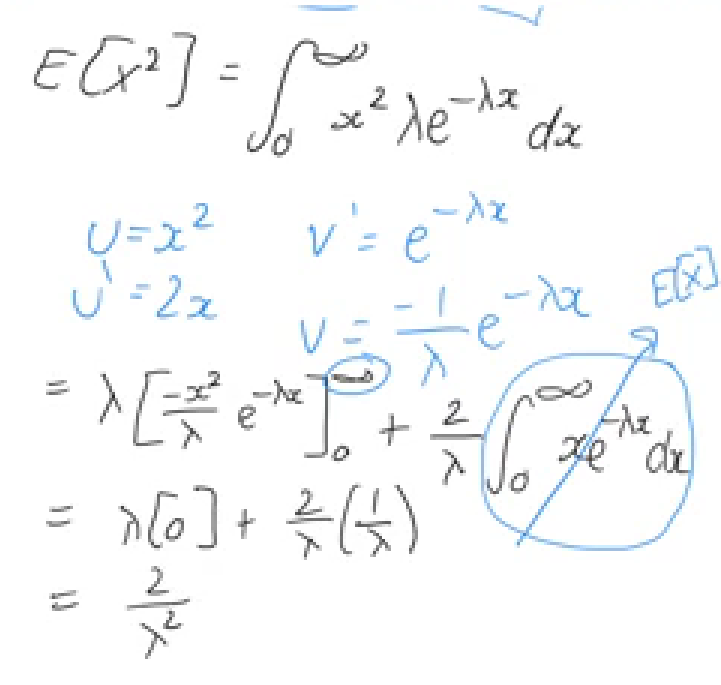 E[x²] = ∫₀^∞ x² λe^{-λx} dx
U = x²    V' = e^{-λx}
U' = 2x    V = \frac{-1}{λ} e^{-λx}
E[X]
= λ[\frac{-x²}{λ} e^{-λx}]₀^∞ + \frac{2}{λ} ∫₀^∞ xe^{-λx} dx
= λ[0] + \frac{2}{λ}(\frac{1}{λ})
= \frac{2}{λ²}